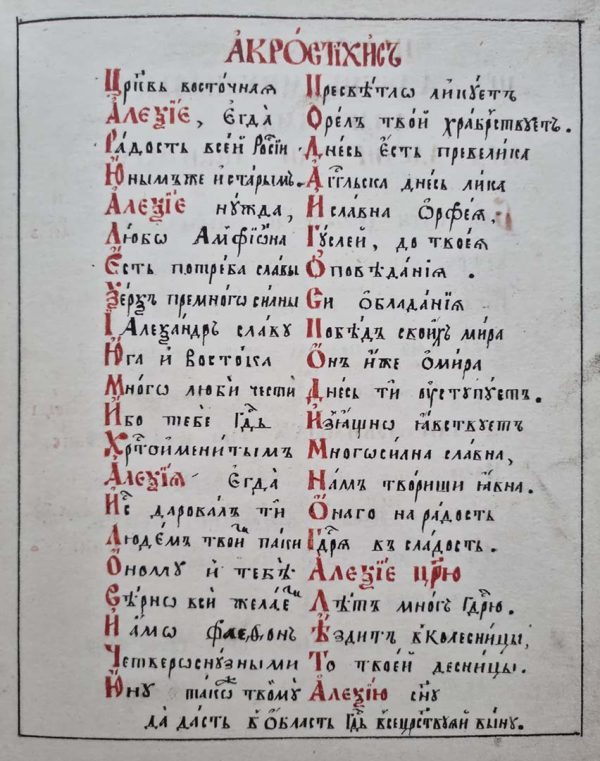 А҆КРО́СТІХИ́СЪ
Цр҃квь восто́чная Пресвѣ́тлѡ лику́етъ
А҆леѯі́е, Е҆гда̀ Ѻ҆ре́лъ тво́й хра́брствуетъ.
Ра́дость все́й Росі́и Дне́сь Е҆́сть превели́ка
Ю҆́нымъ же и҆ ста́рымъ. А҆́гг҃льска дне́сь ли́ка
А҆леѯі́е ну́жда, И҆ сла́вна Ѻ҆рфе́я,
Лю́бѡ А҆мфіѡ́на Гу́слей, до твоея̀
Е҆́сть потре́ба сла́вы Ѻ҆повѣ́данїя.
Ѯе́рѯъ премно́гѡ си́лны Си ѻ҆блада́нїя
І҆ А҆леѯа́ндръ сла́ву Побѣ́дъ свои́хъ ми́ра
Ю҆́га и҆ восто́ка Ѻ҆́нъ и҆́же ѻ҆ ми́ра
Мно́гѡ люби̂ че́сти Дне́сь ти ᲂу҆ступу́етъ.
И҆́бо тебѐ Гдⷭ҇ь И҆зѧ́щнѡ ꙗ҆́вствуетъ
Хрⷭ҇тоимени́тымъ Многоси́лна сла́вна,
А҆леѯі́я Е҆гда̀ На́мъ твори́ши ꙗ҆́вна.
И҆с дарова́лъ тѝ Ѻ҆́наго на ра́дость
Лю́демъ твои́мъ па́ки Гдⷭ҇ря въ сла́дость.
Ѻ҆́ному и҆ тебѣ̀ А҆леѯі́е цр҃ю̀
Вѣ́рнѡ вси̂ жела́емъ Лѣ́тъ мно́гѡ Гдⷭ҇рю.
И҆́амѡ фаеѳо́нъ Ѣ҆́здитъ в колесни́цы,
Четверѡснѹ́зными То твое́й десни́цы.
Ю҆́ну та́кѡ твоему̀ А҆леѯі́ю сн҃у
да да́сть в ѻ҆́бласть Гдⷭ҇ь всецрⷭ҇твуяй вы́ну.